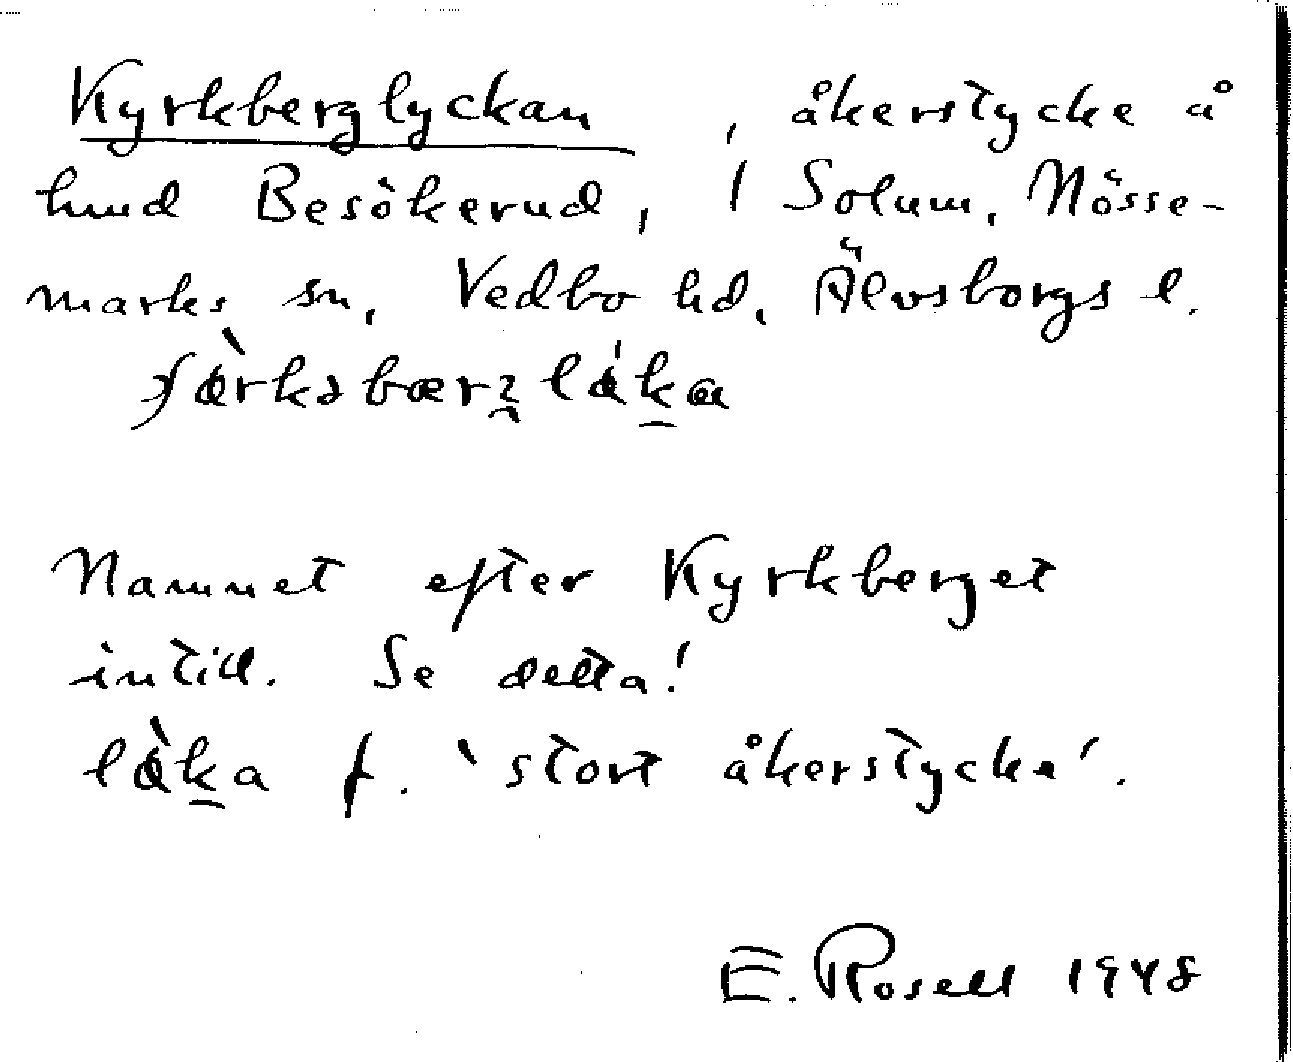 Kyrkberglyckan, åkerstycke å
hmd Besökerud, 1 Solum, Nösse-
marks sn, Vedbo hd, Älvsborgs l.
Namnet efter Kyrkberget
intill. Se detta!
låka f. 'stort åkerstycke'.
E. Rosell 1948